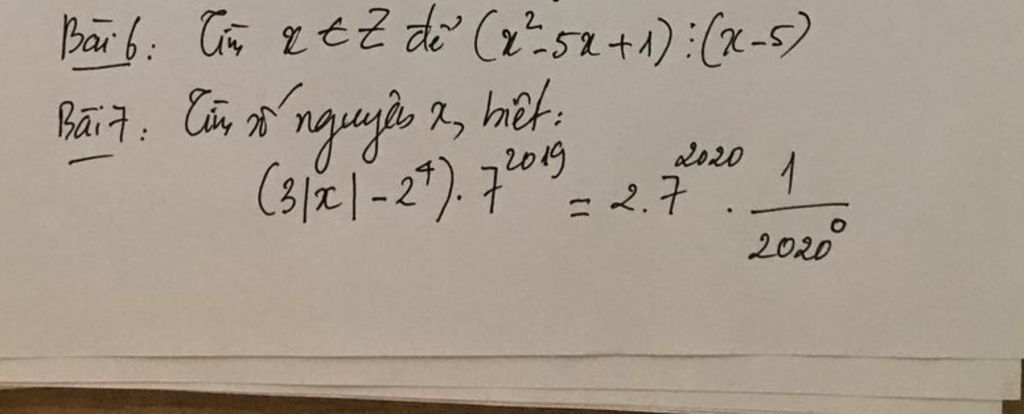 Bài 6: Tìm x ∈ Z để (x² - 5x + 1) ⋮ (x - 5)
Bài 7: Tìm số nguyên x, biết:
(3|x| - 2⁴) . 7²⁰¹⁹ = 2 . 7²⁰²⁰ . 1/2020⁰